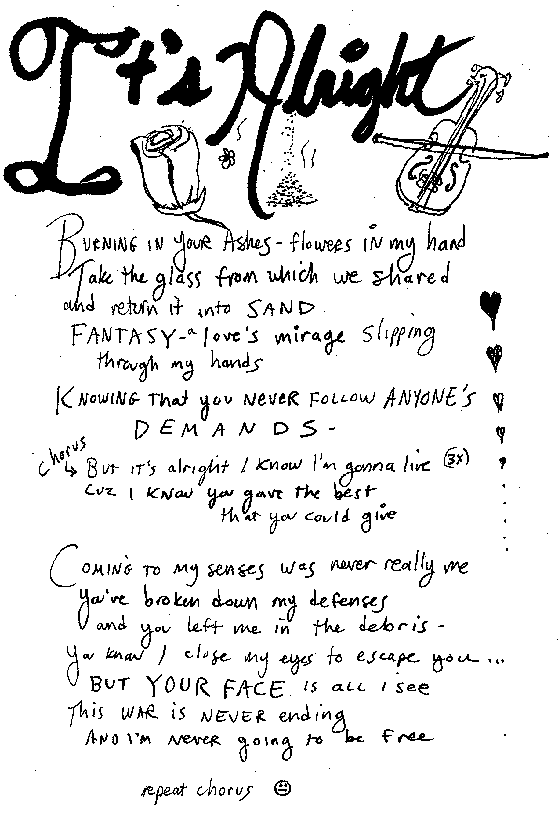 It's Alright
BURNING IN your Ashes - flowers in my hand
Take the glass from which we shared
and return it into SAND
FANTASY - a love's mirage slipping
through my hands
KNOWING That you NEVER FOLLOW ANYONE'S
DEMANDS -
Chorus
But it's alright I know I'm gonna live (3x)
cuz I know you gave the best
that you could give
COMING TO my senses was never really me
you've broken down my defenses
and you left me in the debris -
You know I close my eyes to escape you...
BUT YOUR FACE is all i see
This WAR is NEVER ending
AND I'M NEVER going to be free
repeat chorus